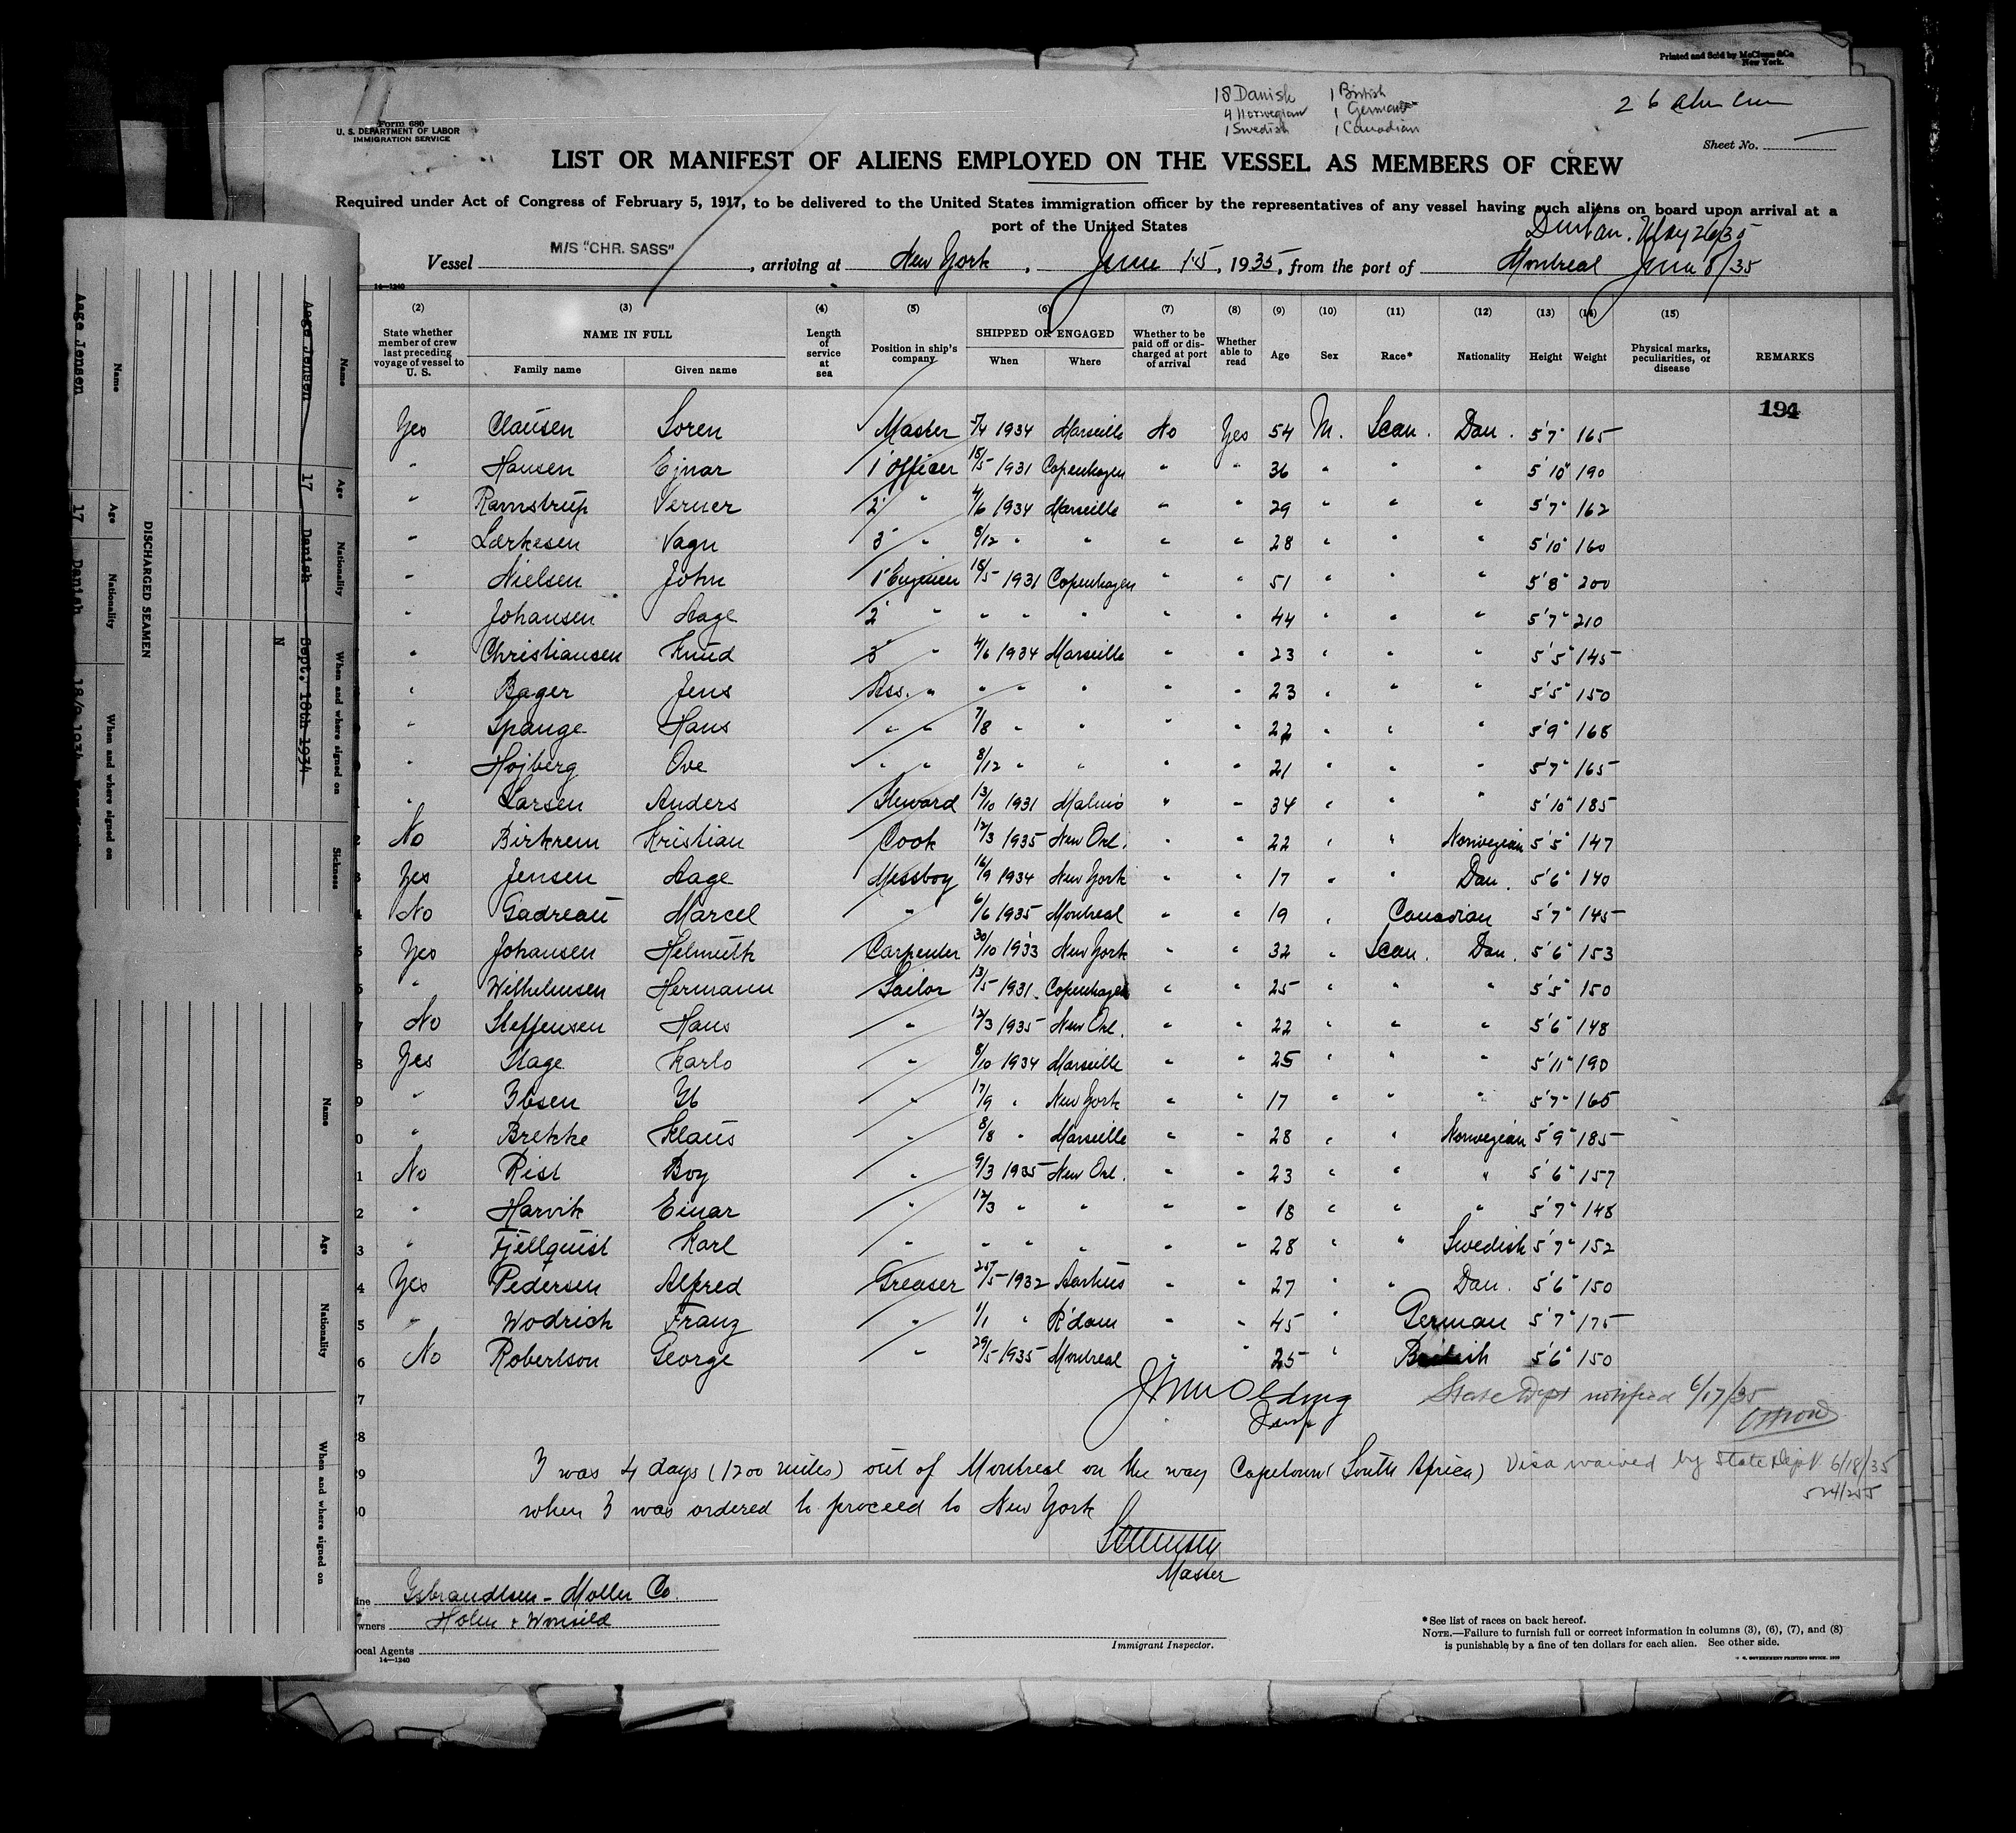 Printed and Sold by McClunn & Co
New York.
18 Danish 1 British
4 Norwegian 1 German
1 Swedish 1 Canadian
26
Form 680
U. S. DEPARTMENT OF LABOR
IMMIGRATION SERVICE
Sheet No.
LIST OR MANIFEST OF ALIENS EMPLOYED ON THE VESSEL AS MEMBERS OF CREW
Required under Act of Congress of February 5, 1917, to be delivered to the United States immigration officer by the representatives of any vessel having such aliens on board upon arrival at a
port of the United States
Durban. May 26/35
Vessel M/S "CHR. SASS", arriving at New York, June 15, 1935, from the port of Montreal June 8/35
14—1240
(2) (3) (4) (5) (6) (7) (8) (9) (10) (11) (12) (13) (14) (15)
State whether member of crew last preceding voyage of vessel to U. S. NAME IN FULL Family name Given name Length of service at sea Position in ship's company SHIPPED OR ENGAGED When Where Whether to be paid off or discharged at port of arrival Whether able to read Age Sex Race* Nationality Height Weight Physical marks, peculiarities, or disease REMARKS
194
Yes Clausen Soren Master 5/4 1934 Marseille No Yes 54 M. Scan. Dan. 5'7" 165
" Hansen Ejnar 1' Officer 18/5 1931 Copenhagen " " 36 " " " 5'10" 190
" Ramstrup Verner 2' " 4/6 1934 Marseille " " 29 " " " 5'7" 162
" Lærkesen Vagn 3' " 8/12 " " " " 28 " " " 5'10" 160
" Nielsen John 1' Engineer 18/5 1931 Copenhagen " " 51 " " " 5'8" 200
" Johansen Aage 2' " " " " " " 44 " " " 5'7" 210
" Christiansen Knud 3' " 4/6 1934 Marseille " " 23 " " " 5'5" 145
" Bager Jens Ass. " " " " " " 23 " " " 5'5" 150
" Spange Hans " " 7/8 " " " " 22 " " " 5'9" 168
" Højberg Ove " " 8/12 " " " " 21 " " " 5'7" 165
" Larsen Anders Steward 13/10 1931 Malmö " " 34 " " " 5'10" 185
No Birkrem Kristian Cook 12/3 1935 New Orl. " " 22 " " Norwegian 5'5" 147
Yes Jensen Aage Messboy 16/9 1934 New York " " 17 " " Dan. 5'6" 140
No Gadreau Marcel " 6/6 1935 Montreal " " 19 " Canadian 5'7" 145
Yes Johansen Helmuth Carpenter 30/10 1933 New York " " 32 " Scan. Dan. 5'6" 153
" Wilhelmsen Hermann Sailor 13/5 1931 Copenhagen " " 25 " " " 5'5" 150
No Steffensen Hans " 12/3 1935 New Orl. " " 22 " " " 5'6" 148
Yes Stage Karlo " 8/10 1934 Marseille " " 25 " " " 5'11" 190
" Ibsen Ib " 17/9 " New York " " 17 " " " 5'7" 165
" Brekke Klaus " 8/8 " Marseille " " 28 " " Norwegian 5'9" 185
No Rist Boy " 9/3 1935 New Orl. " " 23 " " " 5'6" 157
" Harvik Einar " 12/3 " " " " 18 " " " 5'7" 148
" Fjellquist Karl " " " " " " 28 " " Swedish 5'7" 152
Yes Pedersen Alfred Greaser 25/5 1932 Aarhus " " 27 " " Dan. 5'6" 150
" Wodrich Franz " 1/1 " R'dam " " 45 " German 5'7" 175
No Robertson George " 29/5 1935 Montreal " " 25 " British 5'6" 150
State Dept notified 6/17/35
I was 4 days (1200 miles) out of Montreal on the way Capetown (South Africa) Visa waived by State Dept. 6/18/35
when I was ordered to proceed to New York
Master
Isbrandtsen - Moller Co.
Holm & Wonsild
ocal Agents
14—1240
Immigrant Inspector.
*See list of races on back hereof.
NOTE.—Failure to furnish full or correct information in columns (3), (6), (7), and (8)
is punishable by a fine of ten dollars for each alien. See other side.
DISCHARGED SEAMEN
Name Age Nationality When and where signed on Sickness
Aage Jensen 17 Danish Sept. 18th 1934
N
Name Age Nationality When and where signed on
Aage Jensen 17 Danish
Name Age Nationality When and where signed on